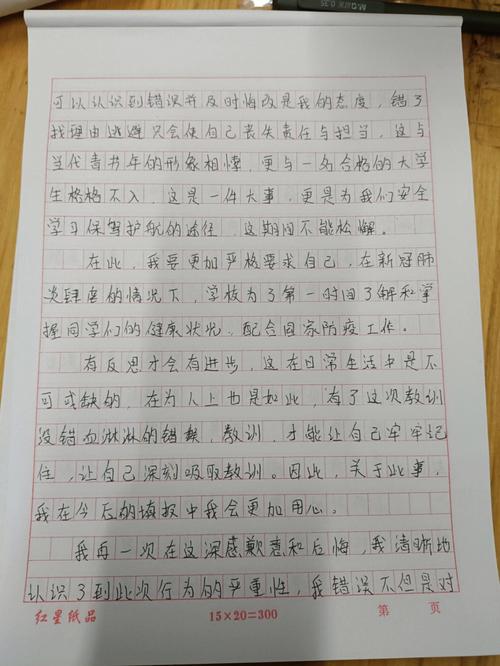 M&G 0.35
可以认识到错误并及时悔改是我的态度，错了
找理由逃避只会使自己丧失责任与担当，这与
当代青书年的形象相悖，更与一名合格的大学
生格格不入，这是一件大事，更是为我们安全
学习保驾护航的途径，这期间不能松懈。
在此，我要更加严格要求自己，在新冠肺
炎肆虐的情况下，学校为了第一时间了解和掌
握同学们的健康状况，配合国家防疫工作。
有反思才会有进步，这在日常生活中是不
可或缺的，在为人上也是如此，有了这次教训
没错血淋淋的错误，教训，才能让自己牢牢记
住，让自己深刻吸取教训。因此，关于此事，
我在今后的填报中我会更加用心。
我再一次在这深感歉意和后悔，我清晰地
认识了到此次行为的严重性，我错误不但是对
红星纸品 15×20=300 第 页